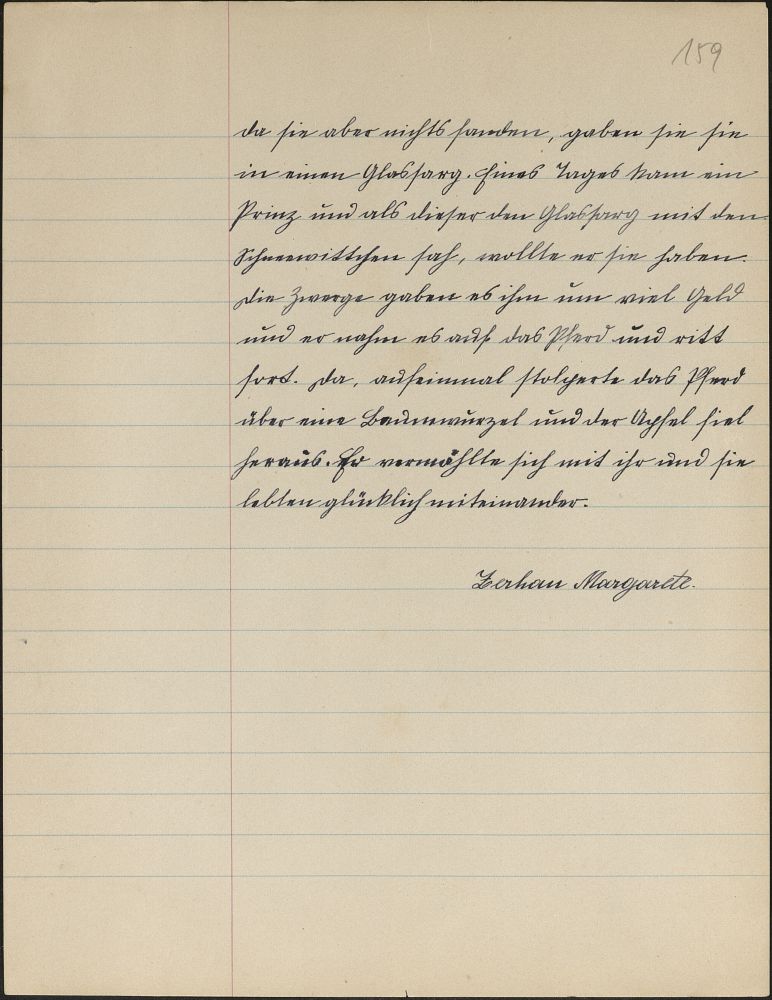 159
da sie aber nichts fanden, gaben sie sie
in einen Glassarg. Eines Tages kam ein
Prinz und als dieser den Glassarg mit den
Schneewittchen sah, wollte er sie haben.
Die Zwerge gaben es ihm um viel Geld
und er nahm es auf das Pferd und ritt
fort. Da, aufeinmal stolperte das Pferd
über eine Baumwurzel und der Apfel fiel
heraus. Er vermählte sich mit ihr und sie
lebten glücklich miteinander.
Zerhau Margarete.